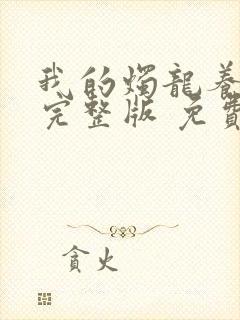 我的燭龍養
完整版 免費
貪火